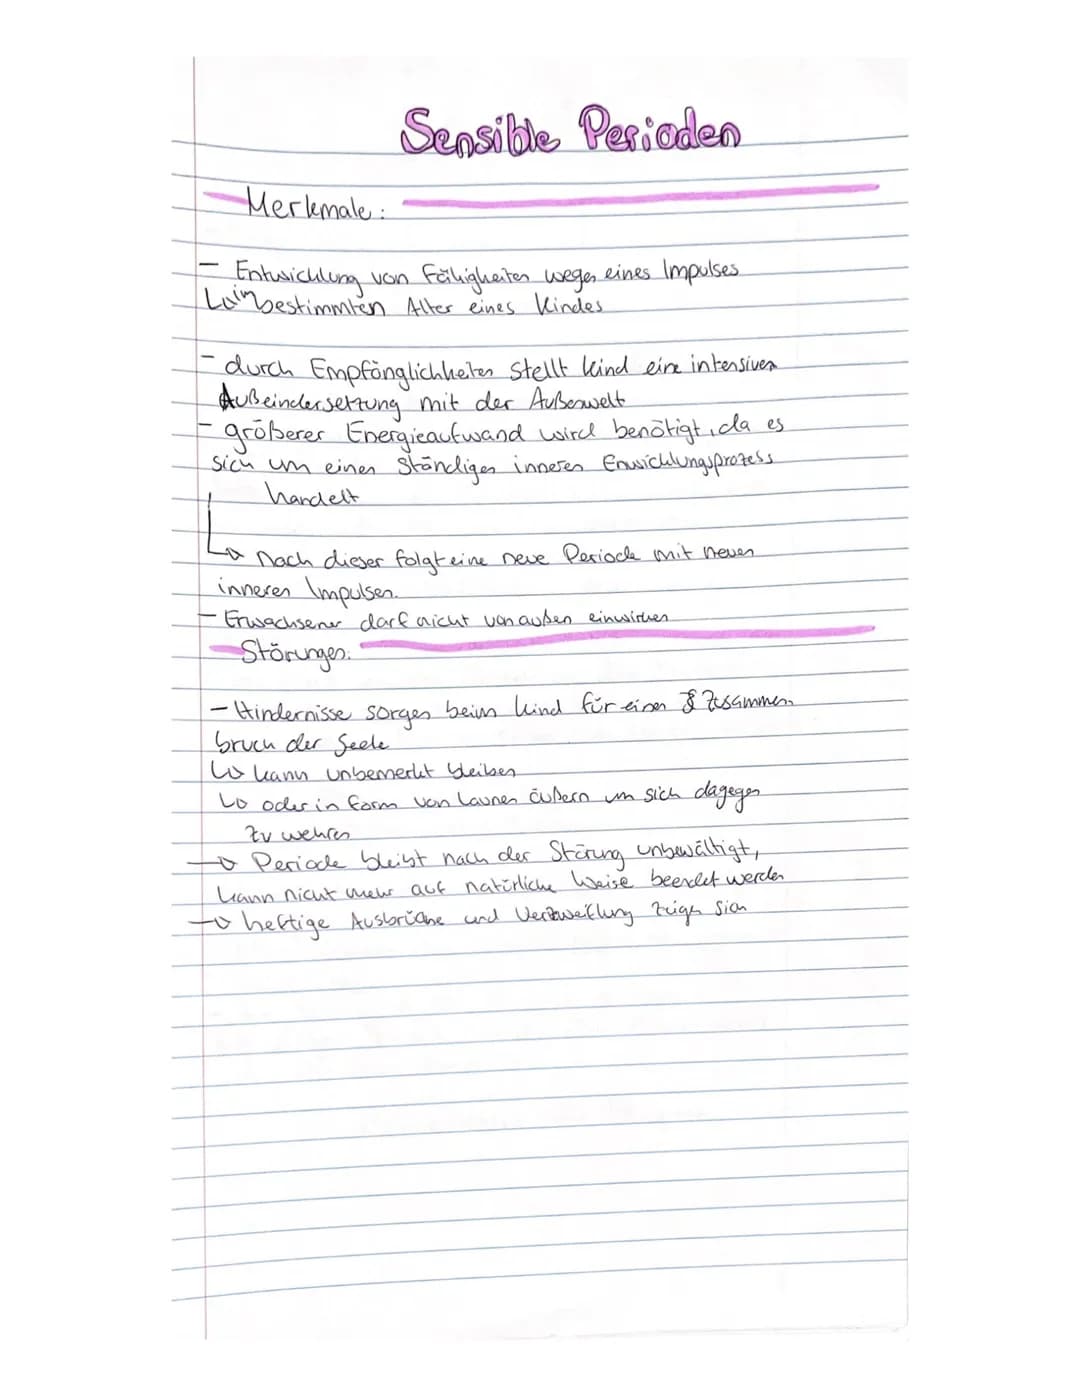 Sensible Perioden
Merkmale:
- Entwicklung von Fähigkeiten wegen eines Impulses
↳ im bestimmten Alter eines Kindes
- durch Empfänglichkeiten stellt Kind eine intensiven
Außeindersetzung mit der Außenwelt
- größerer Energieaufwand wird benötigt, da es
sich um einen ständigen inneren Enwicklungsprozess
handelt
↳ Nach dieser folgt eine neue Periode mit neuen
inneren Impulsen.
- Erwachsener darf nicht von außen einwirken
Störungen:
- Hindernisse sorgen beim Kind für einen Zusammen
bruch der Seele
↳ kann unbemerkt bleiben
↳ oder in Form von Launen äußern um sich dagegen
zu wehren
→ Periode bleibt nach der Störung unbewältigt,
kann nicht mehr auf natürliche Weise beendet werden
→ heftige Ausbrüche und Verzweiflung zeigen sich